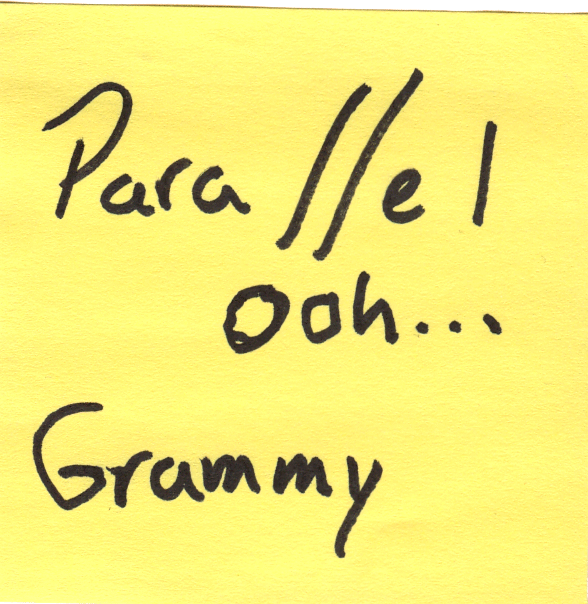 Para//el
ooh...
Grammy